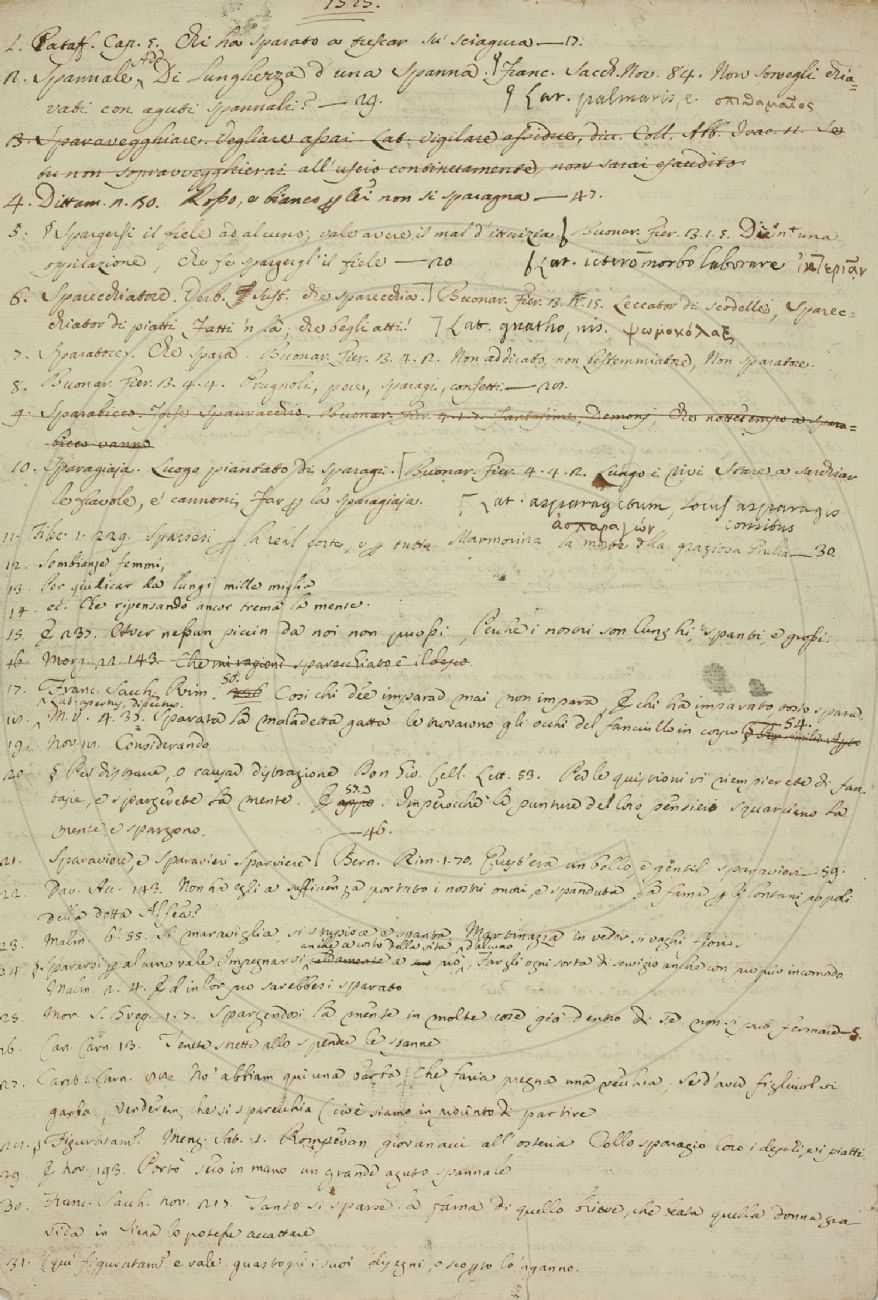 1525.
1. Pataff. Cap. 5. Chi ha sparato a tuscar su' sciagura — 17.
2. Spannale Add. Di lunghezza d'una spanna. Franc. Sacch. Nov. 84. Non sovegli chia=
vati con aguti spannali? — 29. § Lat. palmaris, e σπιθαμαῖος
3. Sparavegghiare. Vegliare assai. Lat. vigilare assidue, Coll. Abb. Isaac. 11. Se
tu non sopravvegghierai all'uscio continuamente, non sarai esaudito.
4. Dittam. 2. 30. Rosso, e bianco per lei non si sparagna — 47.
5. § Spargersi il fiele ad alcuno; vale avere il mal d'itterizia. Buonar. Fier. 3. 1. 5. una
oppilazione, che fe spargergl'il fiele — 20 Lat. ictero morbo laborare
6. Sparecchiatore. Verb. Sust. che sparecchia. Buonar. Fier. 3. 15. Leccator di scodelle, Sparec=
chiator di piatti Fatti 'n là; che begli atti! Lat. gnatho, nis. ψωμοκόλαξ
7. Sparatore. Che spara. Buonar. Fier. 3. 4. 12. Non additato, non bestemmiatore, Non sparatore.
8. Buonar. Fier. 3. 4. 4. Prugnoli, pere, sparagi, confetti —
9. Sparabicco. Forse Spauracchio. Buonar. Fier. 4. 1. 7. Fantasime, Demonj, Che notte tempo a spara=
bicco vanno
10. Sparagiaja. Luogo piantato di sparagi. Buonar. Fier. 4. 4. 12. Lungo i rivi Stare a sarchiar
le fravole, e' cannoni, Far per la sparagiaja. Lat. asparagetum, locus asparagis
consitus
ἀσπαραγών
11. Filoc. 1. 229. Sparsesi per la real corte, e per tutta Marmorina la morte della graziosa Giulia — 30.
12. Sembianze femmi,
13. Per giudicar da lungi mille miglia
14. ec. Che ripensando ancor trema la mente.
15. E 237. Aver nessun piacer da noi non puossi, Perchè i nostri son lunghi, spanti, e grossi.
16. Morg. 22. 143. Che mi ragioni sparecchiato è il desco.
17. Franc. Sacch. Rim. 50. Così chi dee imparar mai non impara, E chi ha imparato tosto spara
Lat. apertus, dissectus.
18. M. V. 4. 37. Sparata la maladetta gatta le trovarono gli occhi del fanciullo in corpo 54.
19. Nov. 18. Considerando
20. § Per distrarre, o causar distrazione Don Gio. Cell. Lett. 53. Per le quistioni vi riempierete di fan=
tasie, e spargerete la mente. E 57. Imperocchè le punture del loro pensiero squarciano la
mente, e spargono. — 46.
21. Sparaviere, e Sparavieri Sparviere Bern. Rim. 1. 70. Quest'era un bello, e gentil sparavieri — 59.
22. Dav. Acc. 143. Non ha egli a sufficienza portato i nostri onori, e spanduta la fama per li lontani popoli
della dotta Alfea?
23. Malm. 6. 55. Si maraviglia, si stupisce e spanta Martinazza in veder sì vaghi fiori.
24. § Spararsi per alcuno vale Impegnarsi anche a costo della vita a pro d'alcuno, Fargli ogni sorta di servizio anche con suo più incomodo
Malm. 2. 4. E d'in lor pro sarebbesi sparato
25. Mor. S. Greg. 1. 7. Spargendosi la mente in molte cose già dentro di se non si può fermare — 5.
26. Car. Carn. 13. Tenete strette allo spender le spanne
27. Cant. Carn. No' abbiam qui una Che faria pregna una vecchia; Se d'aver figliuol vi
garba, Venderem, che si sparecchia (cioè siamo in procinto di partire
28. § Figuratam. Menz. Sat. 1. Rompevan giovanacci all'osteria Collo sparagio loro i deschi, e i piatti.
29. E nov. 193. Portò seco in mano un grande aguto spannale
30. Franc. Sacch. nov. 217. Tanto si sparse la fama di quello brieve, che beata quella donna gra=
vida in Siena lo potesse accattare
31. Qui figuratam. e vale guastogli i suoi disegni, o scoperto lo 'nganno.